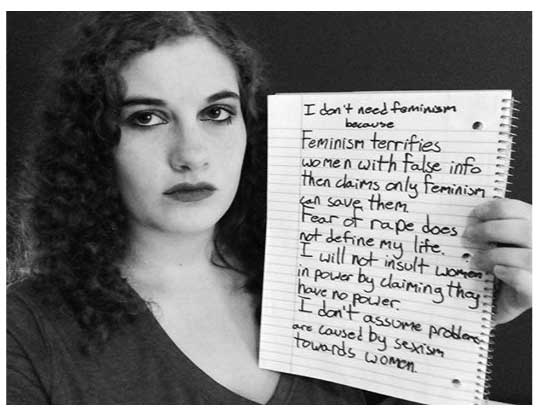 I don't need feminism
because
Feminism terrifies
women with false info
then claims only feminism
can save them.
Fear of rape does
not define my life.
I will not insult women
in power by claiming they
have no power.
I don't assume problems
are caused by sexism
towards women.